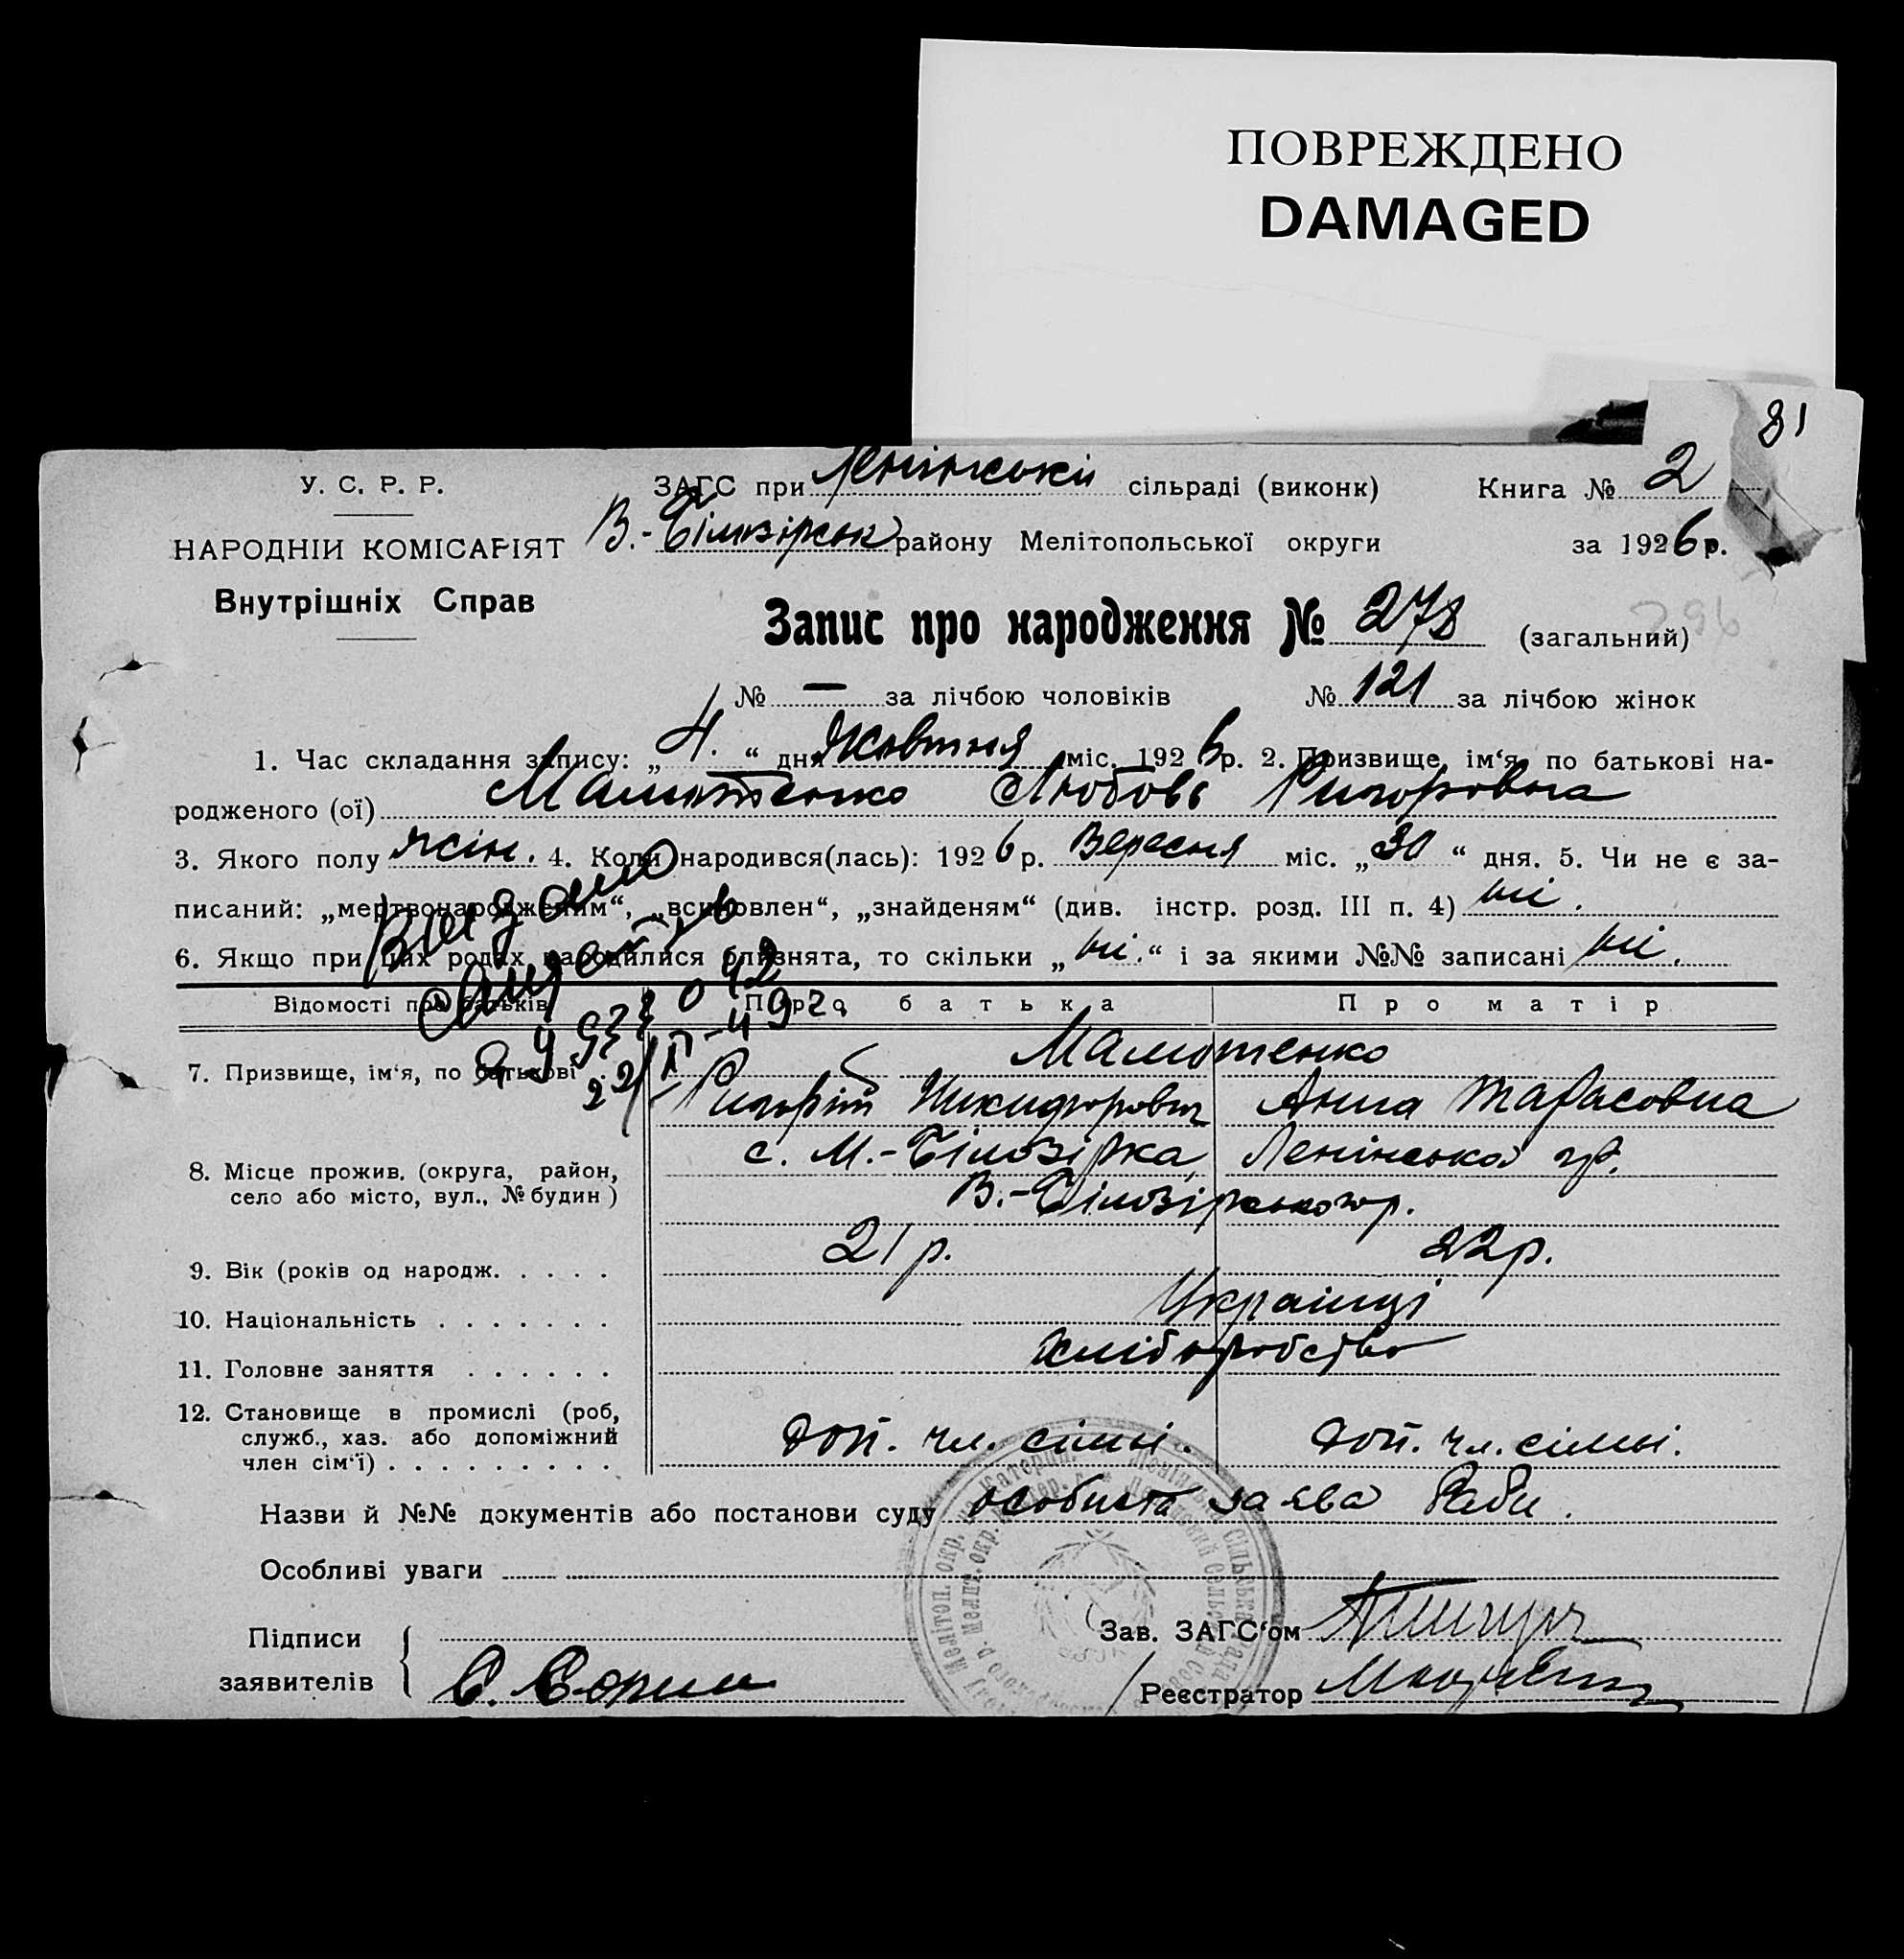 ПОВРЕЖДЕНО
DAMAGED
81
У. С. Р. Р.
ЗАГС при Ленінській сільраді (виконк) Книга № 2
НАРОДНІЙ КОМІСАРІЯТ В.-Білозірськ району Мелітопольської округи за 1926 р.
Внутрішніх Справ
Запис про народження № 278 (загальний)
№ — за лічбою чоловіків № 121 за лічбою жінок
1. Час складання запису: „ 4. “ дня Жовтня міс. 1926 р. 2. Призвище, ім‘я, по батькові на-
родженого (ої) Малютенко Любовь Григоровна
3. Якого полу жін. 4. Коли народився(лась): 1926 р. Вересня міс. „ 30 “ дня. 5. Чи не є за-
писаний: „мертвонародженим“, „всиновлен“, „знайденям“ (див. інстр. розд. III п. 4) ні.
6. Якщо при цих родах народилися близнята, то скільки „ ні. “ і за якими №№ записані ні.
Відомості про батьків Про батька Про матір
7. Призвище, ім‘я, по батькові Малютенко
Григорій Никифорович Анна Тарасовна
8. Місце прожив. (округа, район, с. М.-Білозірка, Ленінська
село або місто, вул., № будин) В.-Білозірського р.
9. Вік (років од народж. 21 р. 22 р.
10. Національність Українці
11. Головне заняття хліборобство
12. Становище в промислі (роб,
служб., хаз. або допоміжний доп. чл. сімьі. доп. чл. сімьі.
член сім‘ї)
Назви й №№ документів або постанови суду особиста заява
Особливі уваги
Підписи Зав. ЗАГС‘ом
заявителів Реєстратор